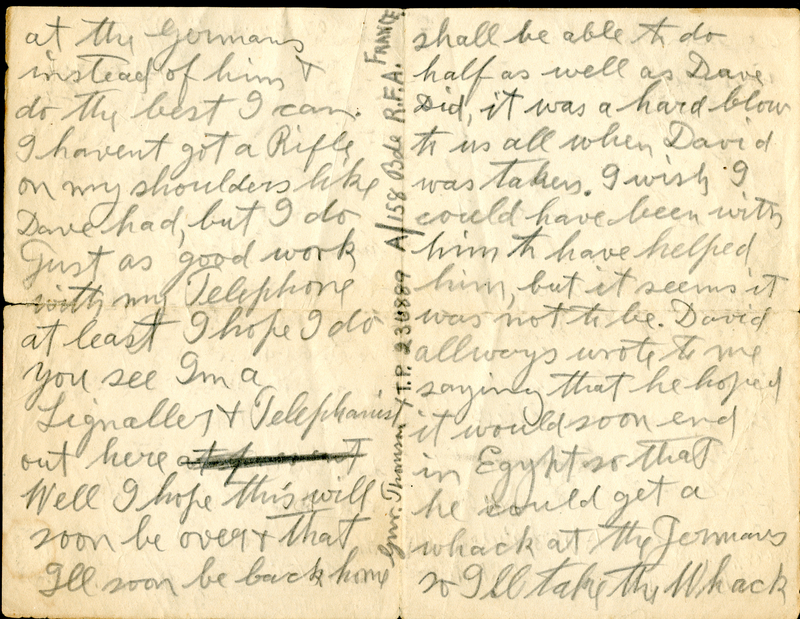 at the Germans
instead of him &
do the best I can.
I havent got a Rifle
on my shoulders like
Dave had, but I do
Just as good work
with my Telephone
at least I hope I do
you see Im a
Signaller & Telephonist
out here at present
Well I hope this will
soon be over & that
Ill soon be back home
Gnr. Thomson / T.P. 236889 A/158 Bde R.F.A. FRANCE
shall be able to do
half as well as Dave
Did, it was a hard blow
to us all when David
was taken. I wish I
could have been with
him to have helped
him, but it seems it
was not to be. David
allways wrote to me
saying that he hoped
it would soon end
in Egypt so that
he could get a
whack at the Jermans
so Ill take the Whack